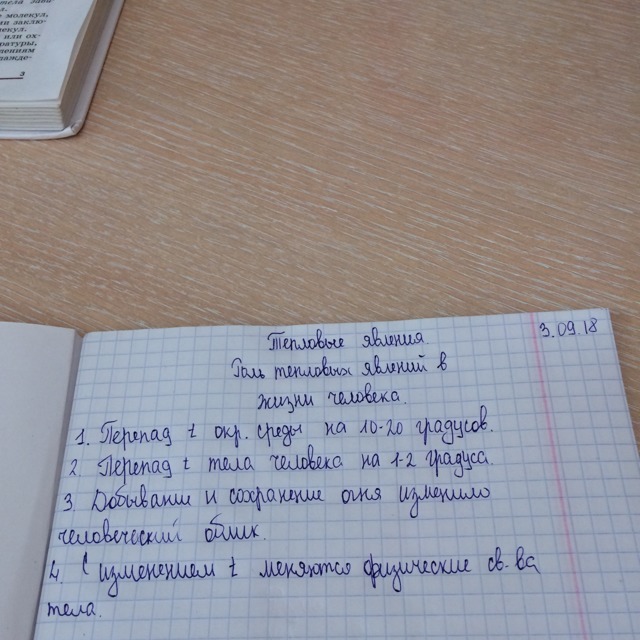 тела зави-
молекул,
ии заклю-
лекул.
или ох-
ратуры,
лениям
лажде-
3
3.09.18
Тепловые явления
Роль тепловых явлений в
жизни человека.
1. Перепад t окр. среды на 10-20 градусов.
2. Перепад t тела человека на 1-2 градуса.
3 Добывание и сохранение огня изменило
человеческий облик.
4. С изменением t меняются физические св-ва
тела.